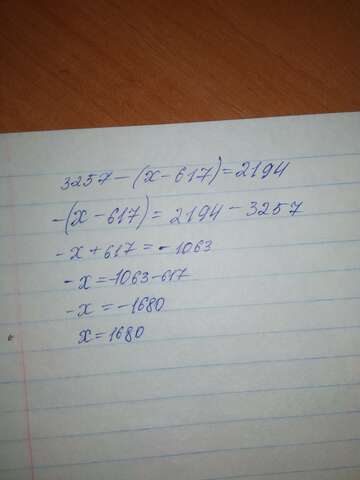 3257-(x-617)=2194
-(x-617)=2194-3257
-x+617=-1063
-x=-1063-617
-x=-1680
x=1680